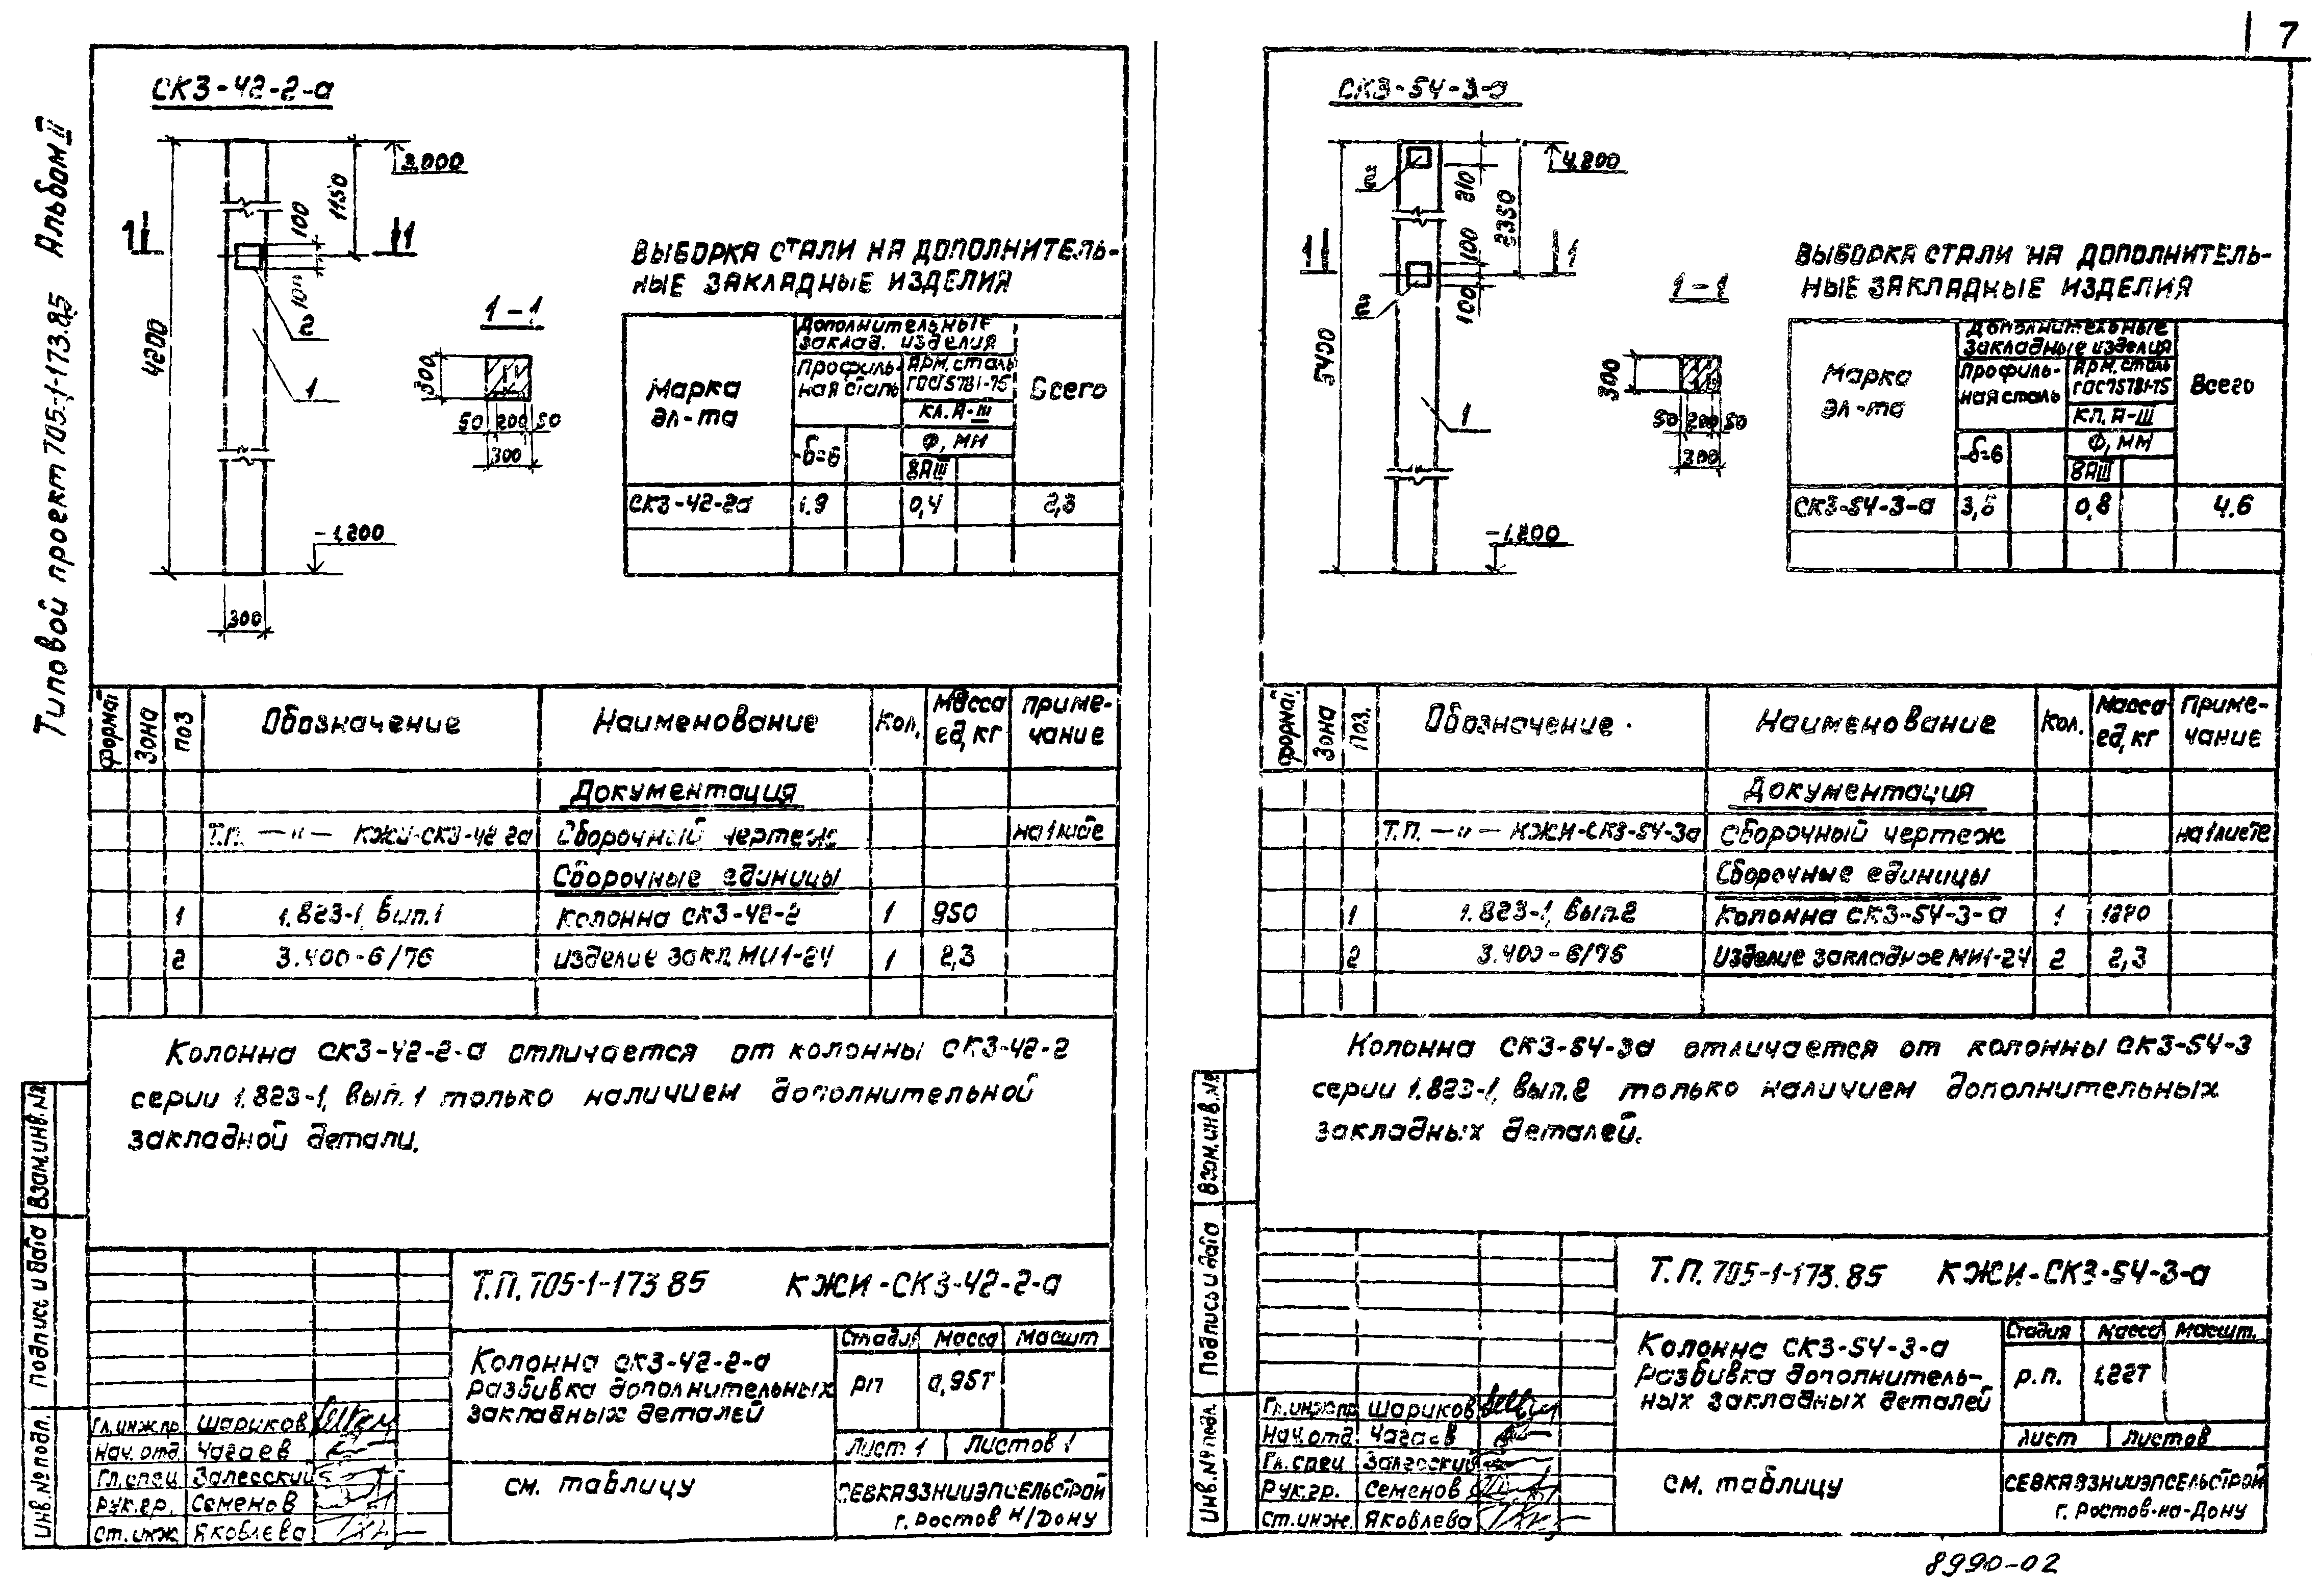 7
Типовой проект 705-1-173.85 Альбом II
СК3-42-2-а
3.000
1150
100
1
1
2
1
4200
-1,200
300
1-1
300
50 200 50
300
ВЫБОРКА СТАЛИ НА ДОПОЛНИТЕЛЬ-
НЫЕ ЗАКЛАДНЫЕ ИЗДЕЛИЯ
Марка эл-та
Дополнительные заклад. изделия
Профиль-ная сталь
Арм. сталь ГОСТ 5781-75
Всего
кл. А-III
-δ=6
Ф, мм
8АIII
СК3-42-2а 1.9 0,4 2,3
формат Зона поз Обозначение Наименование Кол. Масса ед, кг Приме-чание
Документация
Т.П. —"— КЖИ-СК3-42 2а Сборочный чертеж на 1 листе
Сборочные единицы
1 1.823-1, вып.1 Колонна СК3-42-2 1 950
2 3.400-6/76 изделие закл. МИ1-24 1 2,3
Колонна СК3-42-2-а отличается от колонны СК3-42-2
серии 1.823-1, вып. 1 только наличием дополнительной
закладной детали.
Взам.инв.№
Подпись и дата
Инв.№ подл.
Т.П. 705-1-173 85 КЖИ-СК3-42-2-а
Колонна СК3-42-2-а
Разбивка дополнительных
закладных деталей
Стадия Масса Масшт
РП 0,95т
Лист 1 Листов 1
Гл.инж.пр. Шариков
Нач. отд. Чагаев
Гл.спец Залесский
Рук.гр. Семенов
Ст.инж Яковлева
см. таблицу
СЕВКАВЗНИИЭПСЕЛЬСТРОЙ
г. Ростов н/Дону
СК3-54-3-а
4.200
2
210
2350
100
1
1
100
2
5400
1
-1.200
1-1
300
50 200 50
300
ВЫБОРКА СТАЛИ НА ДОПОЛНИТЕЛЬ-
НЫЕ ЗАКЛАДНЫЕ ИЗДЕЛИЯ
Марка эл-та
Дополнительные закладные изделия
Профиль-ная сталь
Арм. сталь ГОСТ 5781-75
Всего
КЛ. А-III
-δ=6
Ф, мм
8АIII
СК3-54-3-а 3,8 0,8 4.6
формат. Зона Поз. Обозначение Наименование Кол. Масса ед, кг Приме-чание
Документация
Т.П. —"— КЖИ-СК3-54-3а Сборочный чертеж на 1 листе
Сборочные единицы
1 1.823-1, вып.2 Колонна СК3-54-3-а 1 1220
2 3.400-6/76 Изделие закладное МИ1-24 2 2,3
Колонна СК3-54-3а отличается от колонны СК3-54-3
серии 1.823-1, вып.2 только наличием дополнительных
закладных деталей.
Взам.инв.№
Подпись и дата
Инв.№ подл.
Т.П. 705-1-173.85 КЖИ-СК3-54-3-а
Колонна СК3-54-3-а
Разбивка дополнитель-
ных закладных деталей
Стадия Масса Масшт.
Р.П. 1,22т
Лист Листов
Гл.инж.пр Шариков
Нач.отд. Чагаев
Гл.спец Залесский
Рук.гр. Семенов
Ст.инж. Яковлева
см. таблицу
СЕВКАВЗНИИЭПСЕЛЬСТРОЙ
г. Ростов-на-Дону
8990-02